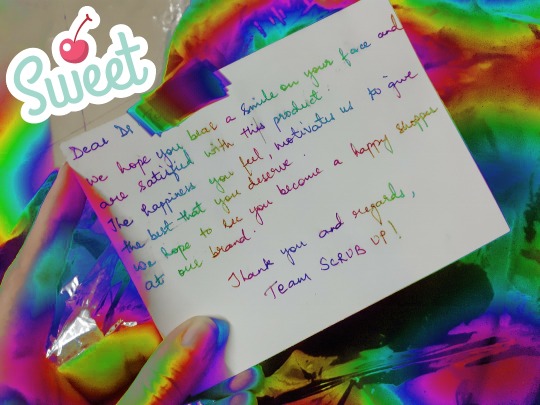 Sweet
Dear Dr
we hope you bear a smile on your face and
are satisfied with this product.
The happiness you feel, motivates us to give
the best that you deserve.
we hope to see you become a happy shopper
at our brand.
Thank you and regards,
Team SCRUB UP!